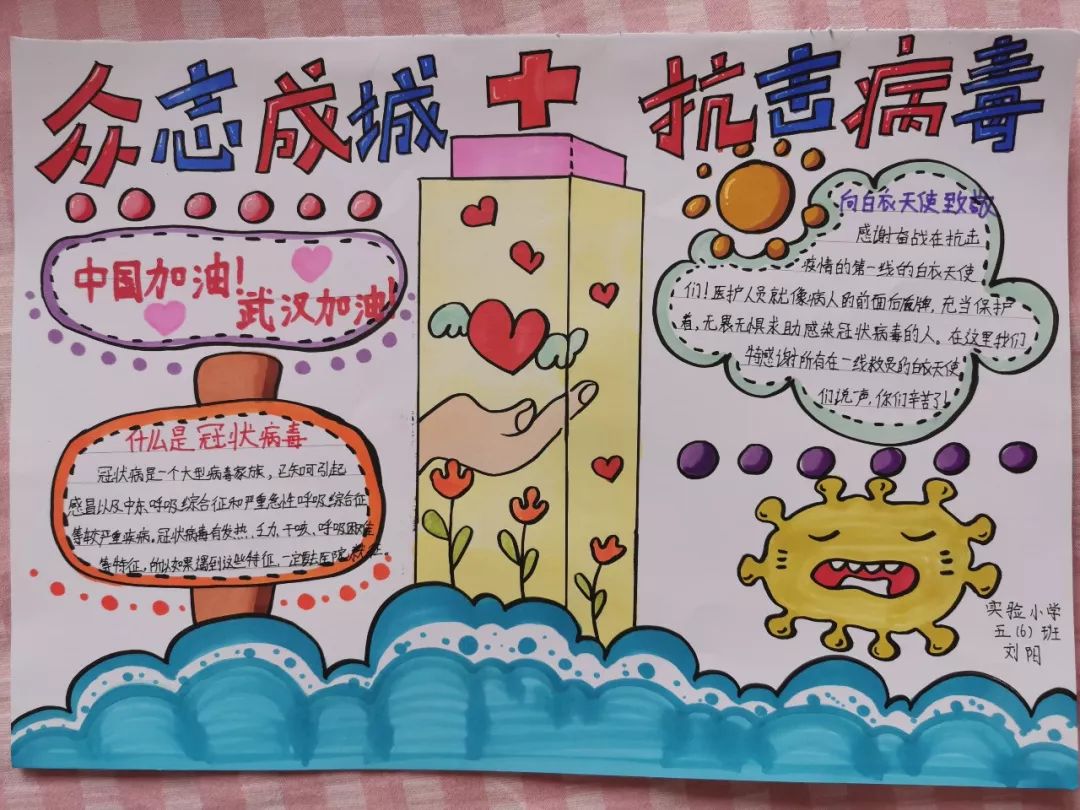 众志成城
抗击病毒
中国加油!
武汉加油!
什么是冠状病毒
冠状病是一个大型病毒家族,已知可引起
感昌以及中东呼吸综合征和严重急性呼吸综合征
等较严重疾病。冠状病毒有发热、乏力、干咳、呼吸困难
等特征,所以如果遇到这些特征,一定要去医院
向白衣天使致敬
感谢奋战在抗击
疫情的第一线的白衣天使
们!医护人员就像病人的前面后盾牌,充当保护
着,无畏无惧求助感染冠状病毒的人。在这里我们
特感谢所有在一线救灾的白衣天使
们说一声,你们辛苦了!
实验小学
五(6)班
刘阳